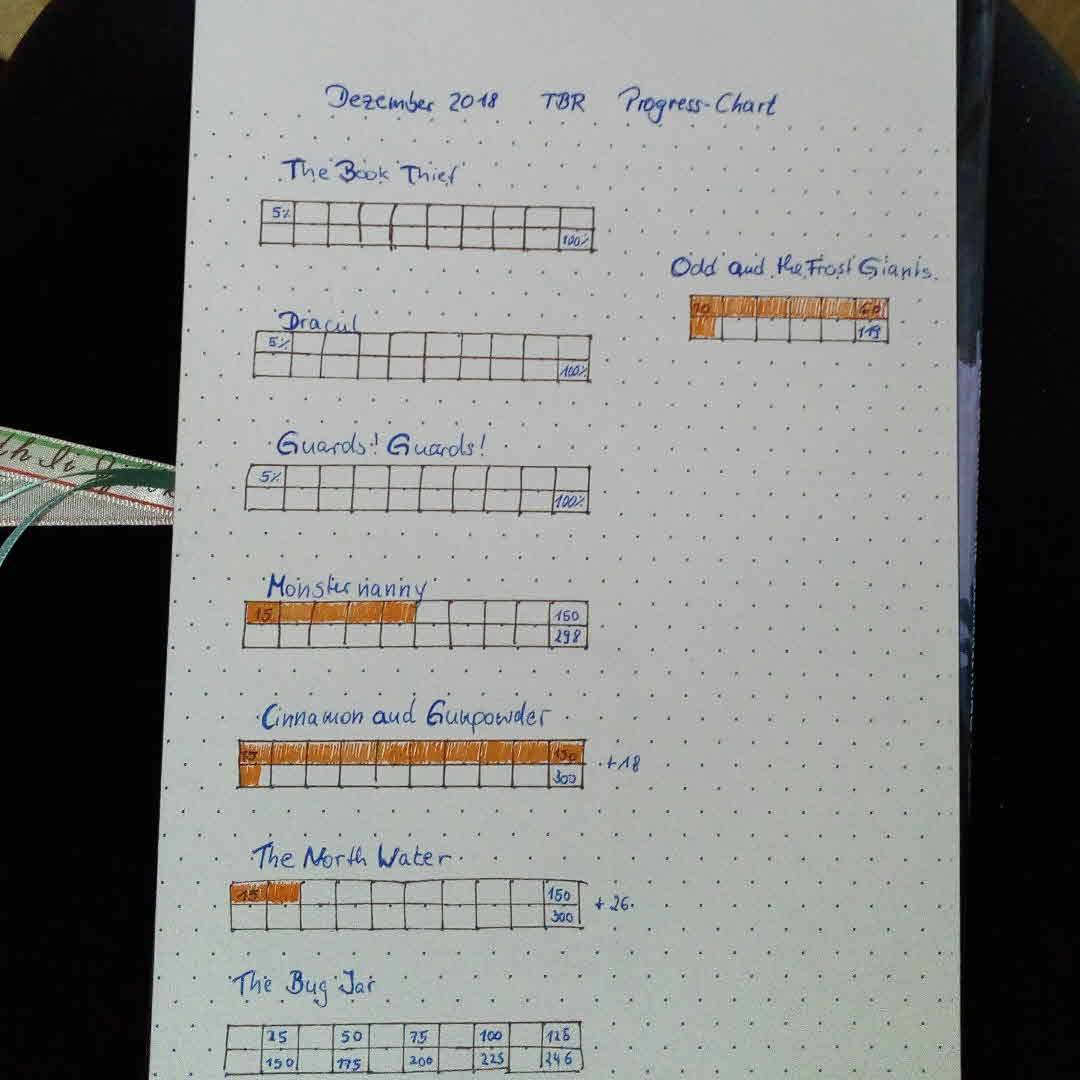 Dezember 2018 TBR Progress-Chart
The Book Thief
5%
100%
Odd and the Frost Giants
10 60
119
Dracul
5%
100%
Guards! Guards!
5%
100%
Monsternanny
15 150
298
Cinnamon and Gunpowder
15 150
300
+18
The North Water
15 150
300
+26
The Bug Jar
25 50 75 100 125
150 175 200 225 246